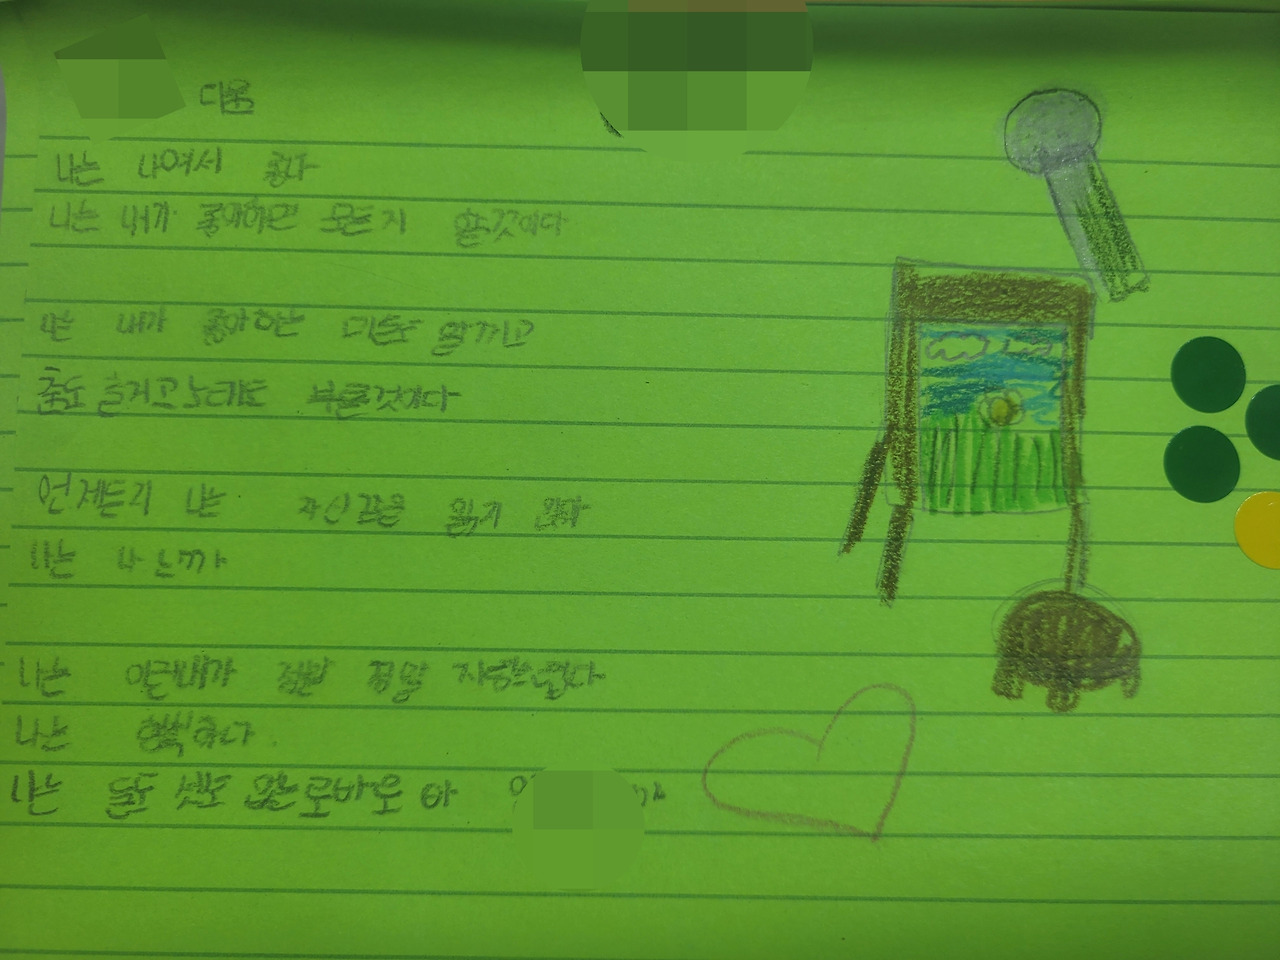 다움
나는 나여서 좋다
나는 내가 좋아하면 모든지 할것이다
나는 내가 좋아하는 미술도 할꺼고
춤도 출거고 노래도 부를것이다
언제든지 나는 자신감을 잃지 않다
나는 나니까
나는 이런내가 정말 자랑스럽다
나는 행복하다.
나는 둘도 셋도 없는